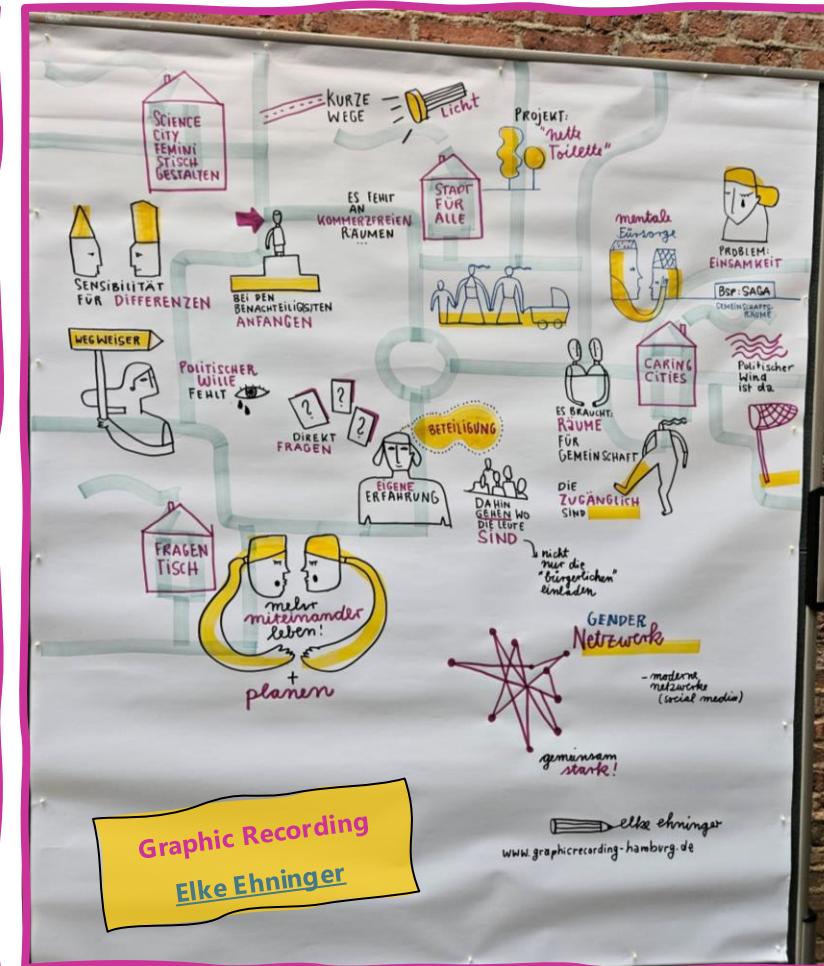 SCIENCE
CITY
FEMINI
STISCH
GESTALTEN
KURZE
WEGE
LICHT
PROJEKT:
"nette
Toilette"
STADT
FÜR
ALLE
ES FEHLT
AN
KOMMERZFREIEN
RÄUMEN
...
SENSIBILITÄT
FÜR DIFFERENZEN
BEI DEN
BENACHTEILIGSTEN
ANFANGEN
mentale
Fürsorge
PROBLEM:
EINSAMKEIT
BSP: SAGA
GEMEINSCHAFTS
RÄUME
WEGWEISER
POLITISCHER
WILLE
FEHLT
?
?
?
DIREKT
FRAGEN
BETEILIGUNG
EIGENE
ERFAHRUNG
DAHIN
GEHEN WO
DIE LEUTE
SIND
nicht
nur die
"bürgerlichen"
einladen
ES BRAUCHT:
RÄUME
FÜR
GEMEINSCHAFT
DIE
ZUGÄNGLICH
SIND
CARING
CITIES
Politischer
Wind
ist da
FRAGEN
TISCH
mehr
miteinander
leben!
+
planen
GENDER
Netzwerk
- moderne
netzwerke
(social media)
gemeinsam
stark!
elke ehninger
www.graphicrecording-hamburg.de
Graphic Recording
Elke Ehninger